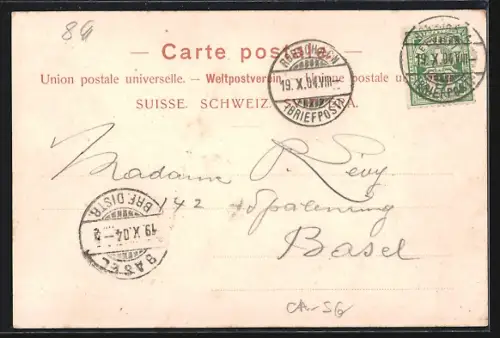 89
Carte postale
Union postale universelle. — Weltpostverein. — Unione postale universale
SUISSE. SCHWEIZ. SVIZZERA.
RORSCHACH
19.X.04.VIII
(BRIEFPOST)
19.X.04.VIII
(BRIEFPOST)
Madame R. Lévy
142 Spalenring
Basel
BRF. DISTR.
19.X.04.
BASEL
CH-SG